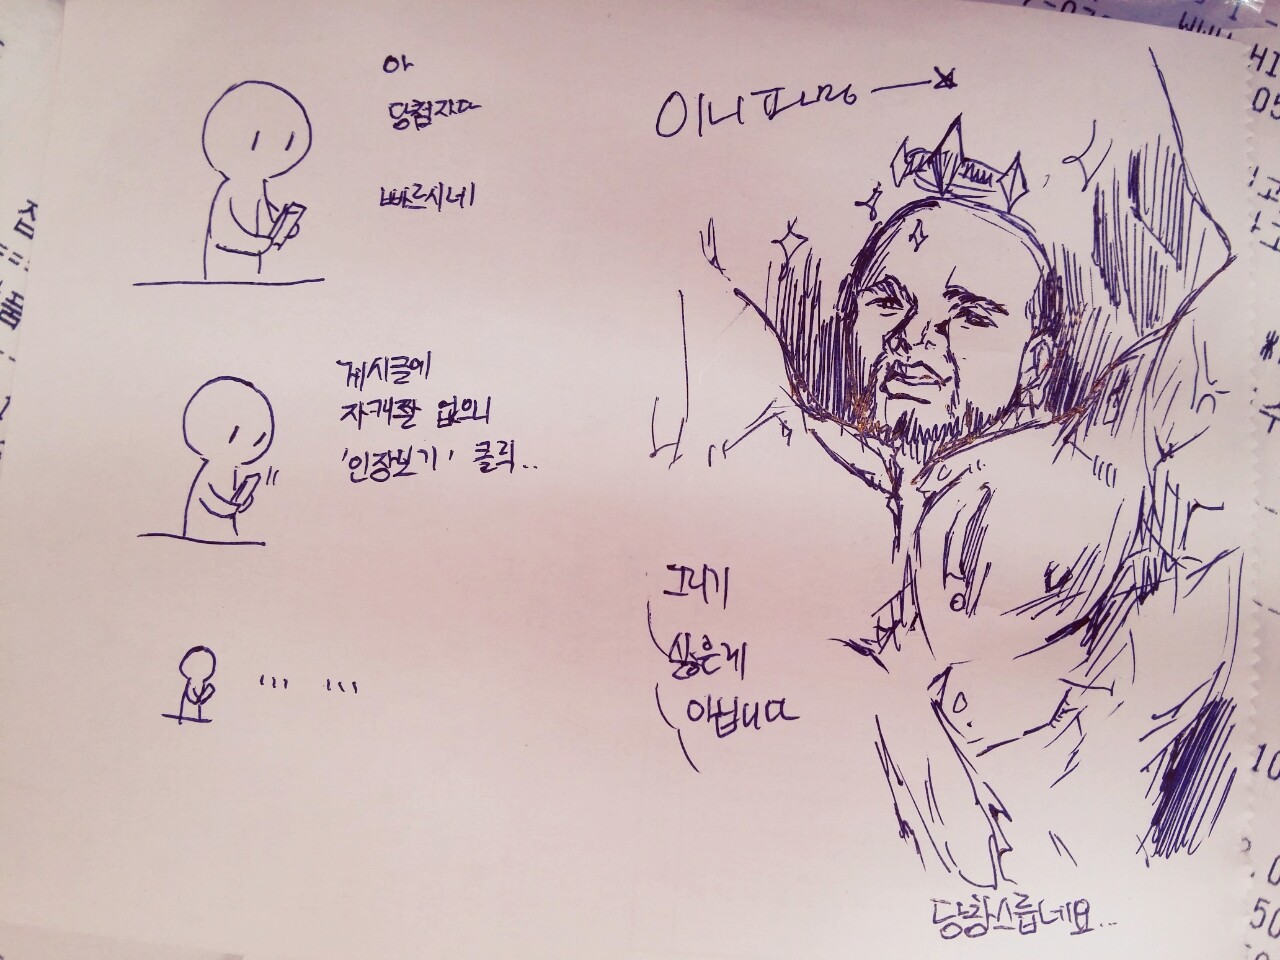 아
당첨자다
빠르시네
게시글에
자캐짤 없으니
'인장보기' 클릭..
... ...
그리기
싫은게
아닙니다
당황스럽네요...